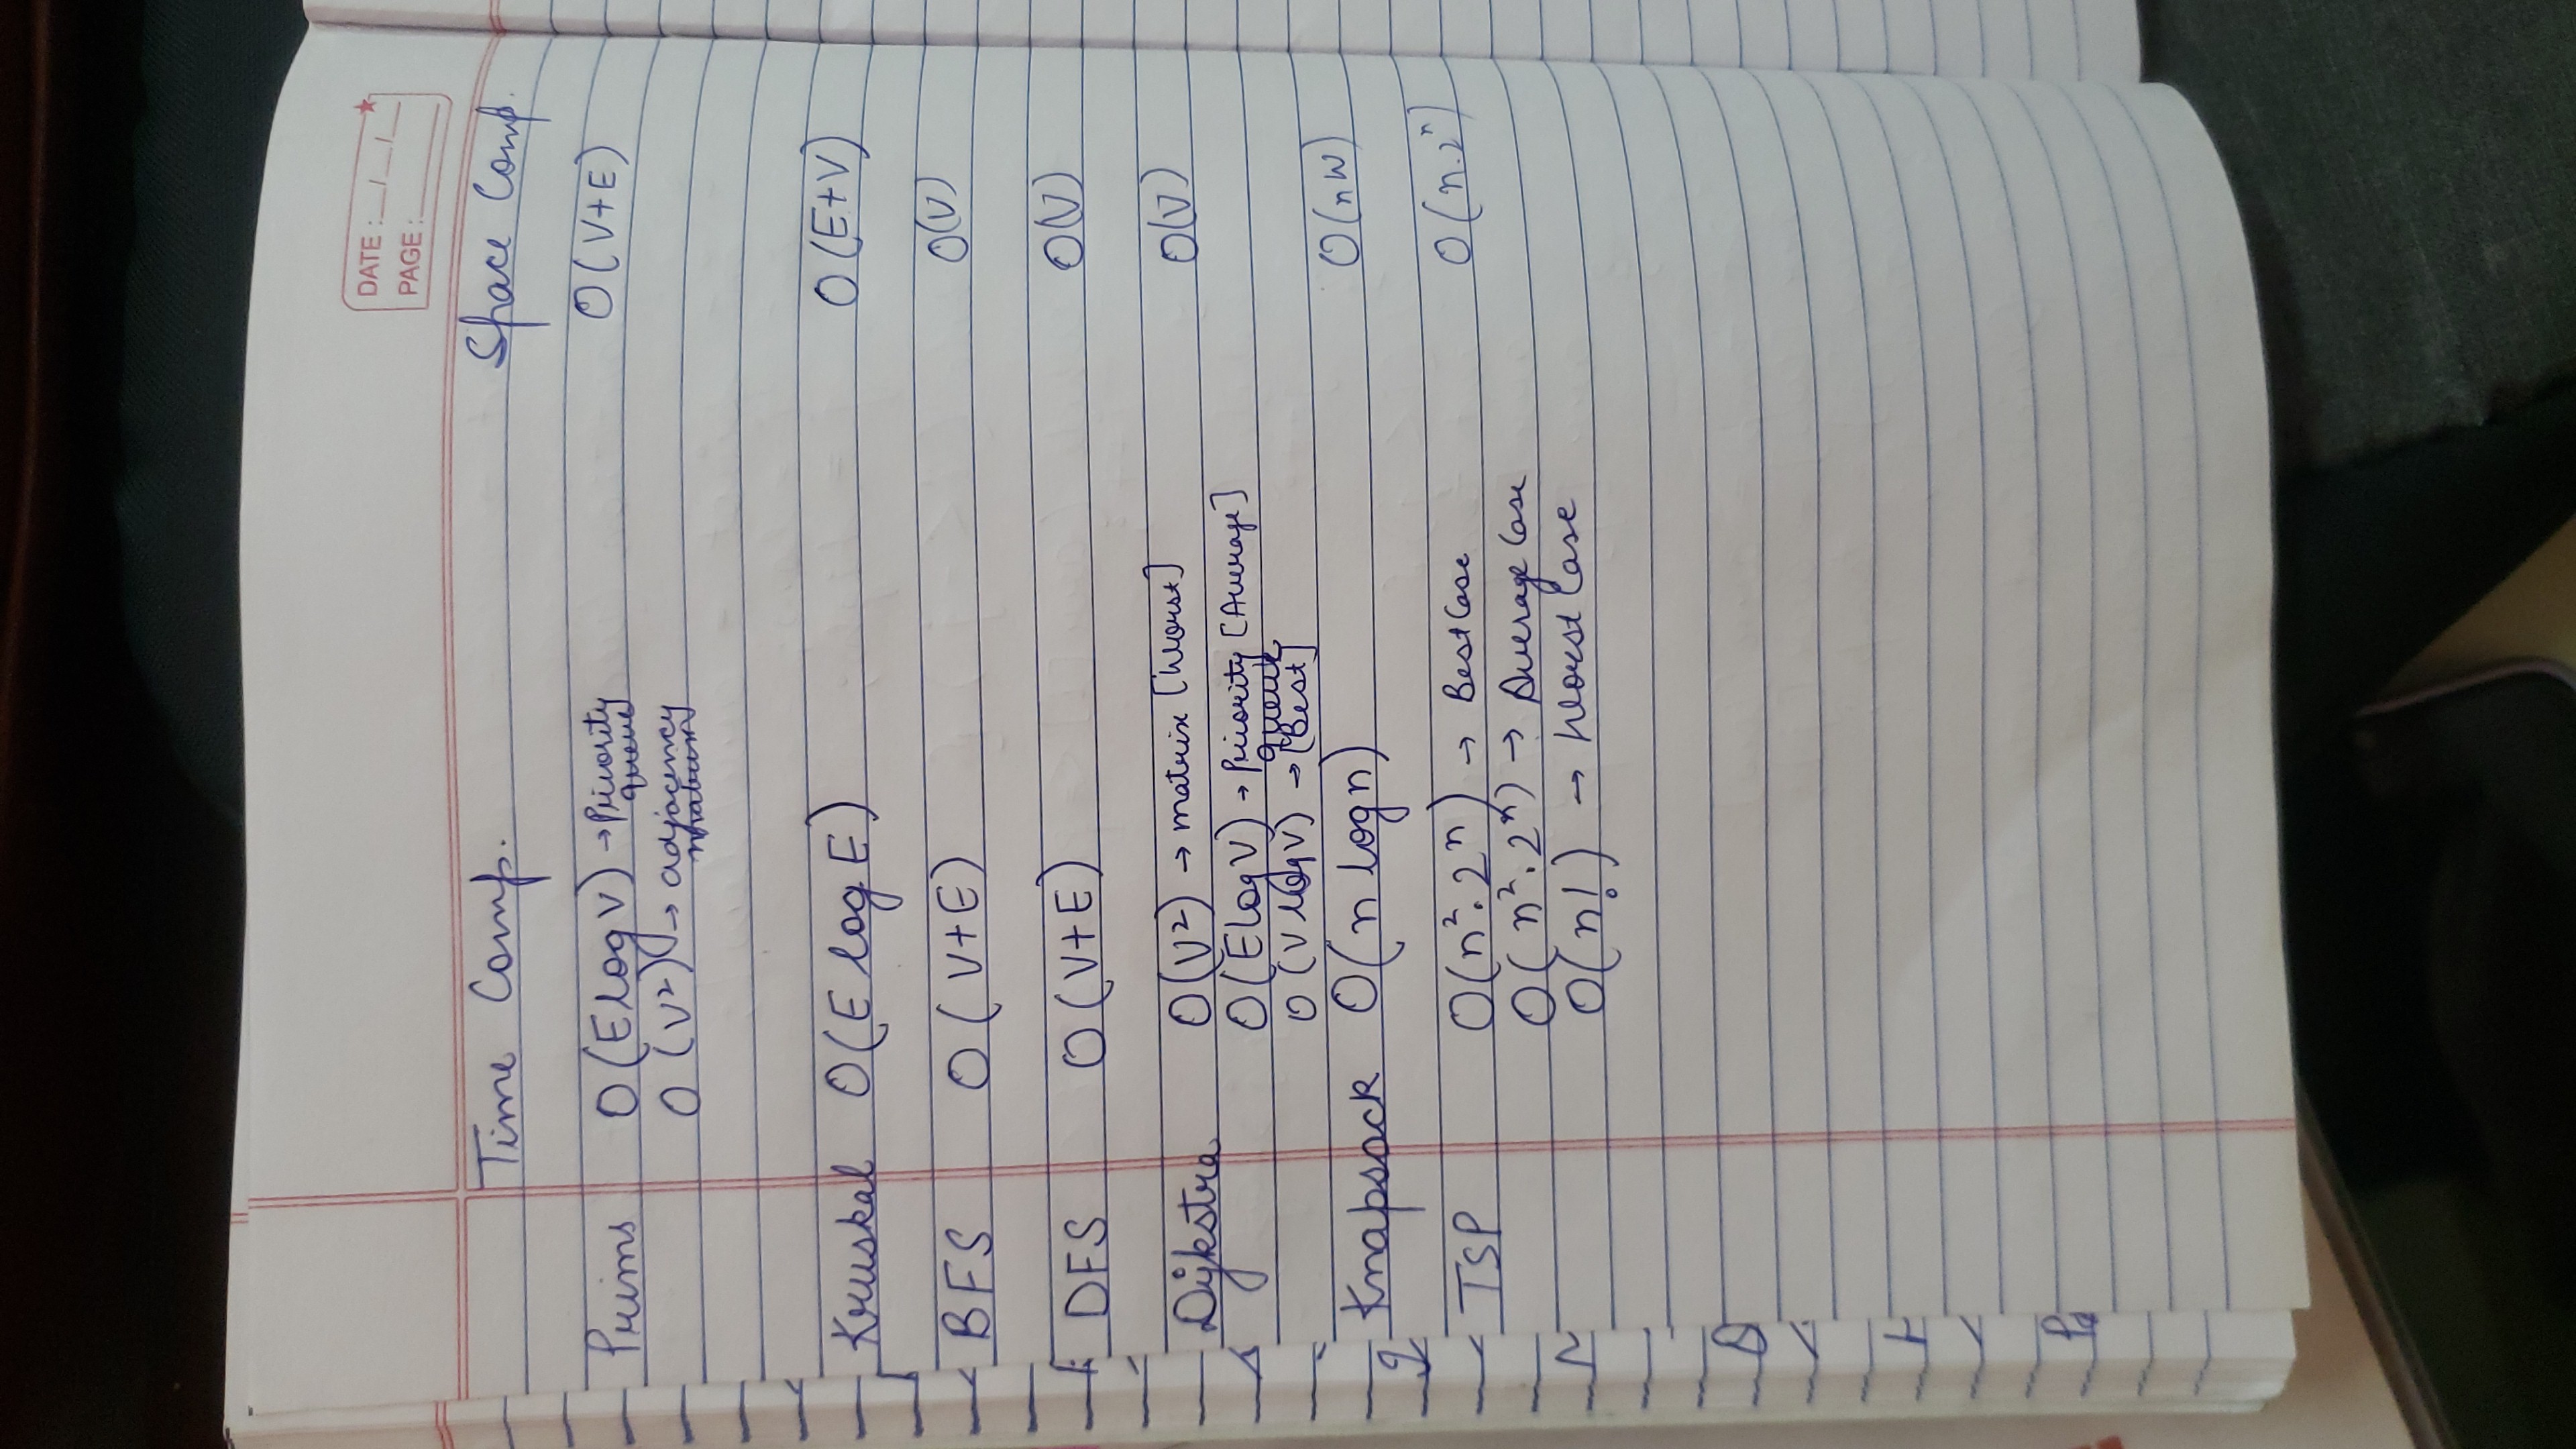 DATE :__/__/__
PAGE :______
Time Comp. Space Comp.
Prims O(ElogV) → Priority queue O(V+E)
O(V²) → adjacency
Kruskal O(E log E) O(E+V)
BFS O(V+E) O(V)
DFS O(V+E) O(V)
Dijkstra O(V²) → matrix [Worst] O(V)
O(ElogV) → Priority queue [Average]
O(V logV) → [Best]
Knapsack O(n logn) O(nW)
TSP O(n².2ⁿ) → Best Case O(n.2ⁿ)
O(n².2ⁿ) → Average Case
O(n!) → Worst Case